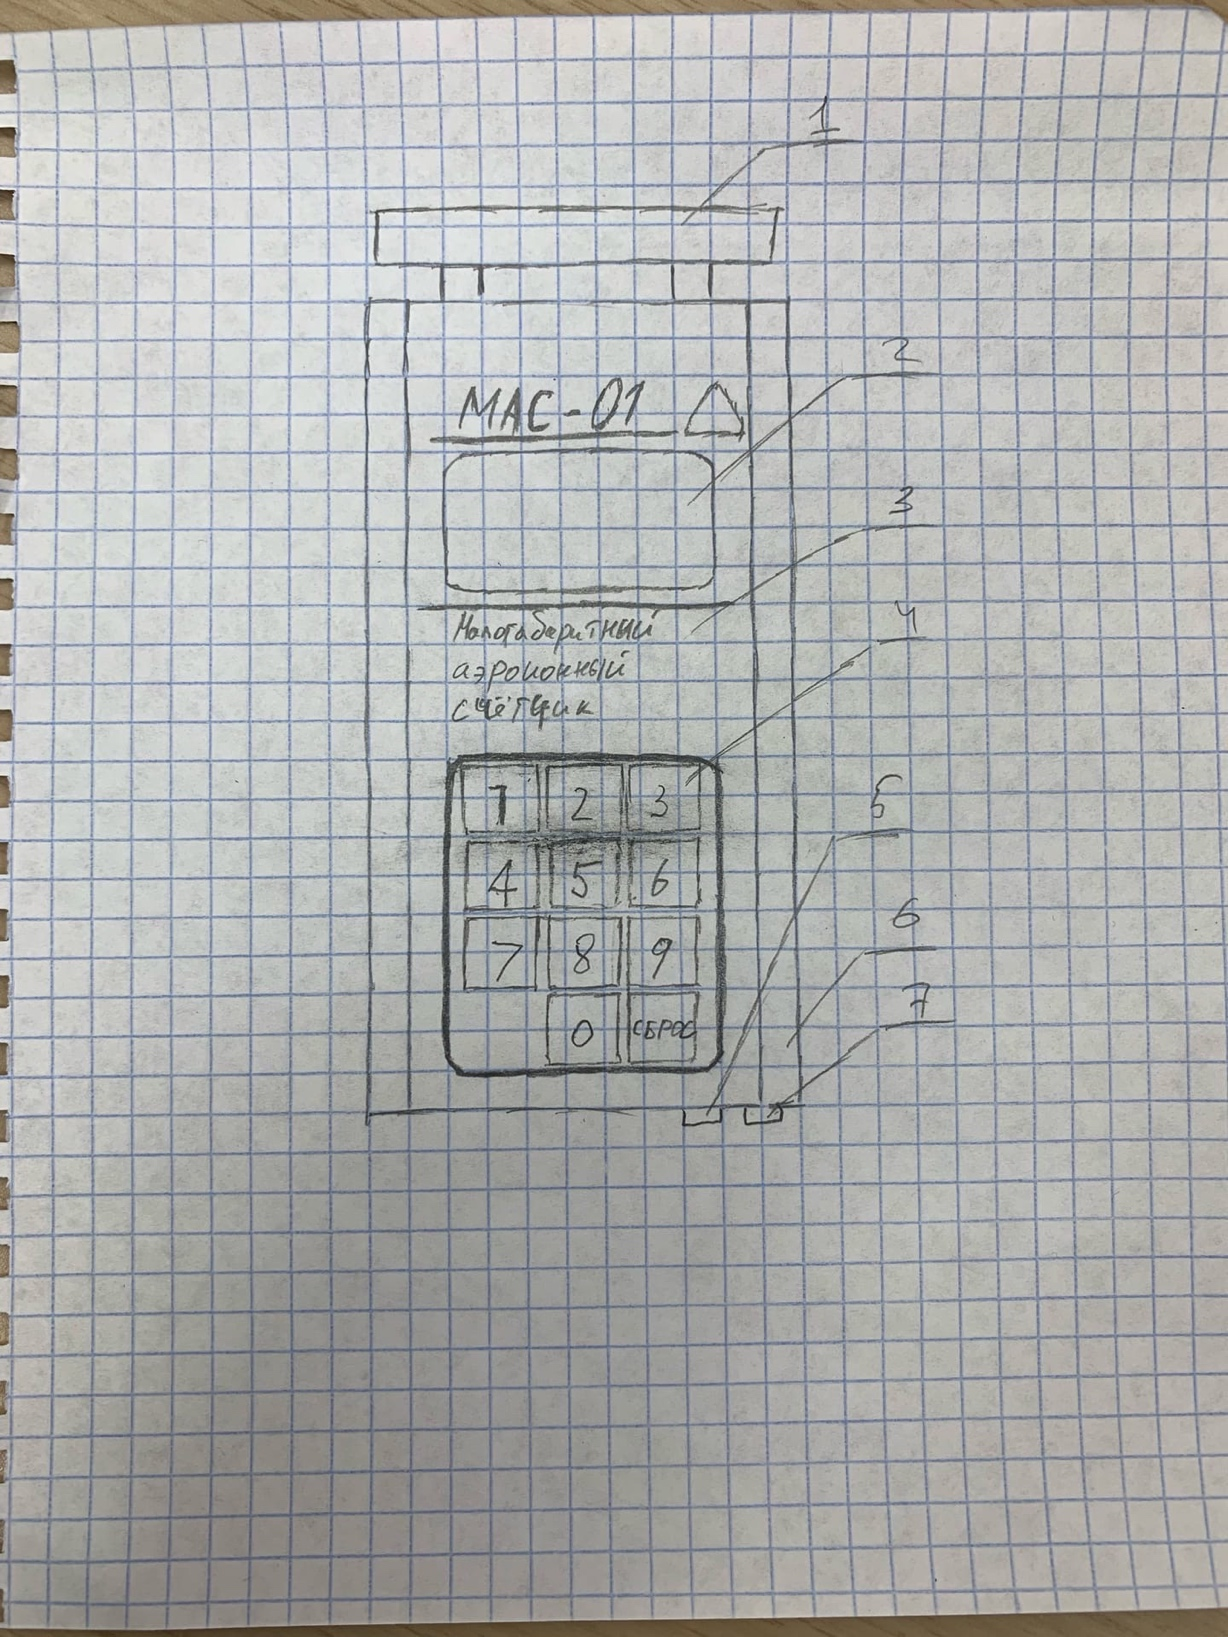 1
2
МАС-01
3
4
Малогабаритный
аэроионный
счётчик
1 2 3
5
4 5 6
6
7 8 9
7
0 СБРОС